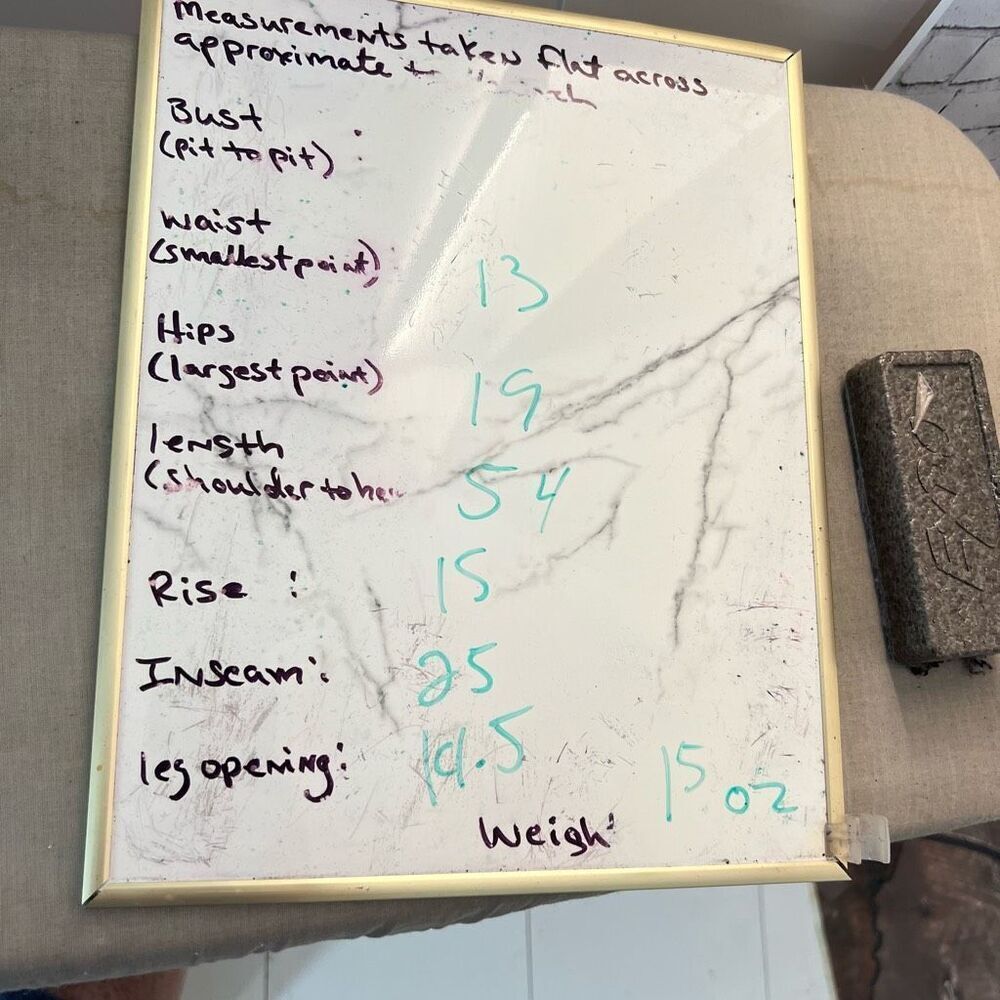 Measurements taken flat across
approximate
Bust :
(pit to pit)
waist
(smallest point) 13
Hips
(largest point) 19
length
(shoulder to 54
Rise : 15
Inseam: 25
leg opening: 
15 oz
Weigh